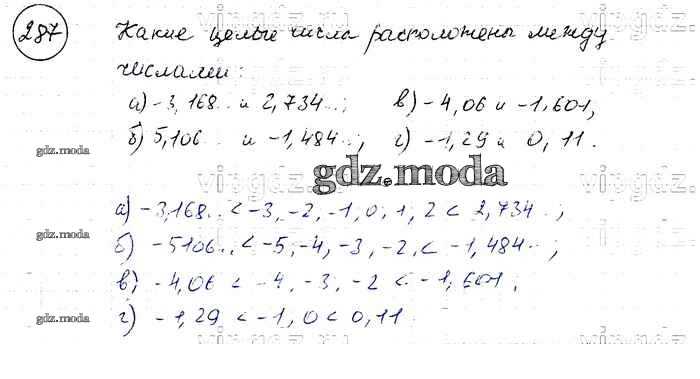 287 Какие целые числа расположены между
числами:
а) -3,168.. и 2,734..; в) -4,06 и -1,601,
б) 5,106.. и -1,484..; г) -1,29 и 0,11.
gdz.moda
gdz.moda
а) -3,168.. < -3, -2, -1, 0, 1, 2 < 2,734..;
gdz.moda
б) -5106.. < -5, -4, -3, -2, < -1,484..;
в) -4,06 < -4, -3, -2 < -1,601,
г) -1,29 < -1, 0 < 0,11
gdz.moda